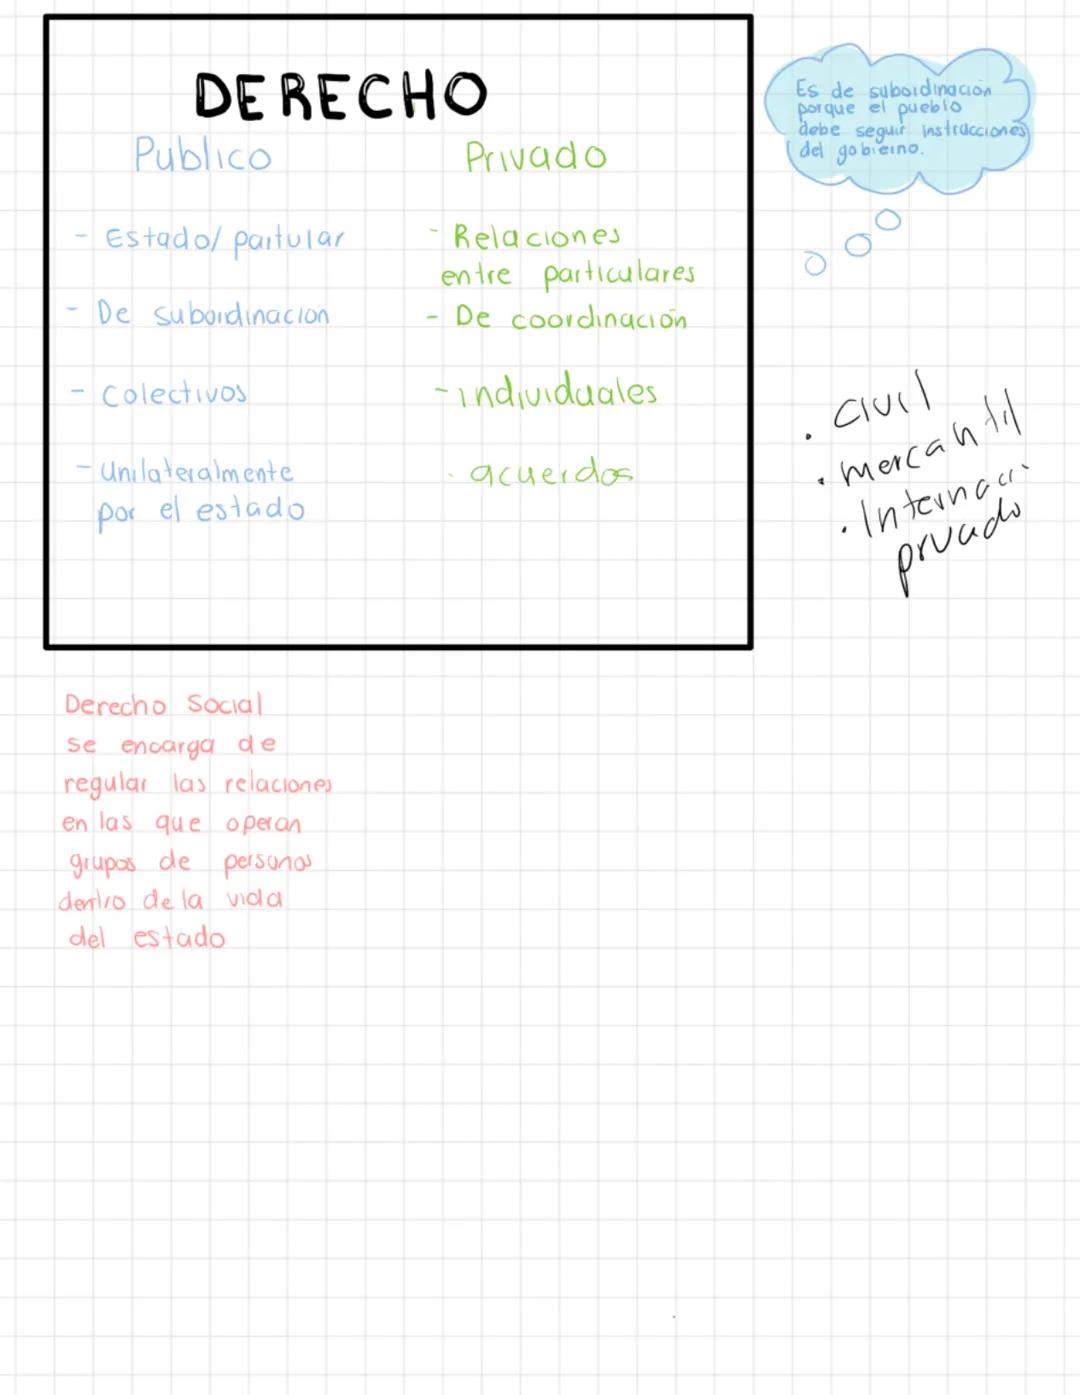 DERECHO
Publico
Privado
- Estado/ partular
- De subordinacion
- Colectivos
- Unilateralmente
por el estado
- Relaciones
entre particulares
- De coordinación
- individuales
- acuerdos
Es de subordinación
porque el pueblo
debe seguir instrucciones
del gobierno.
• civil
• mercantil
• Internaci
privado
Derecho Social
se encarga de
regular las relaciones
en las que operan
grupos de personas
dentro de la vida
del estado